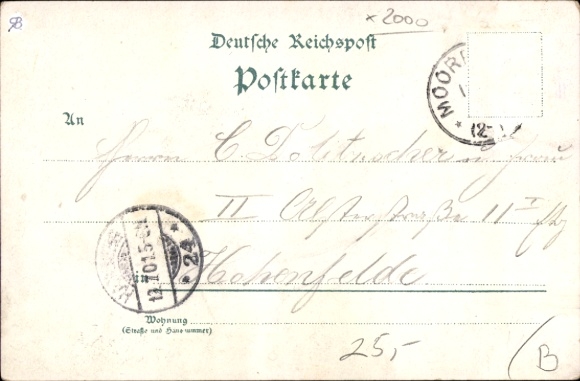 × 2000
Deutsche Reichspost
Postkarte
MOORR
An
Herrn C.
II Alsterstraße 11 I
in Hohenfelde
12.7.01.5-6N
* 24 *
Wohnung
(Straße und Hausnummer)
25,-
B